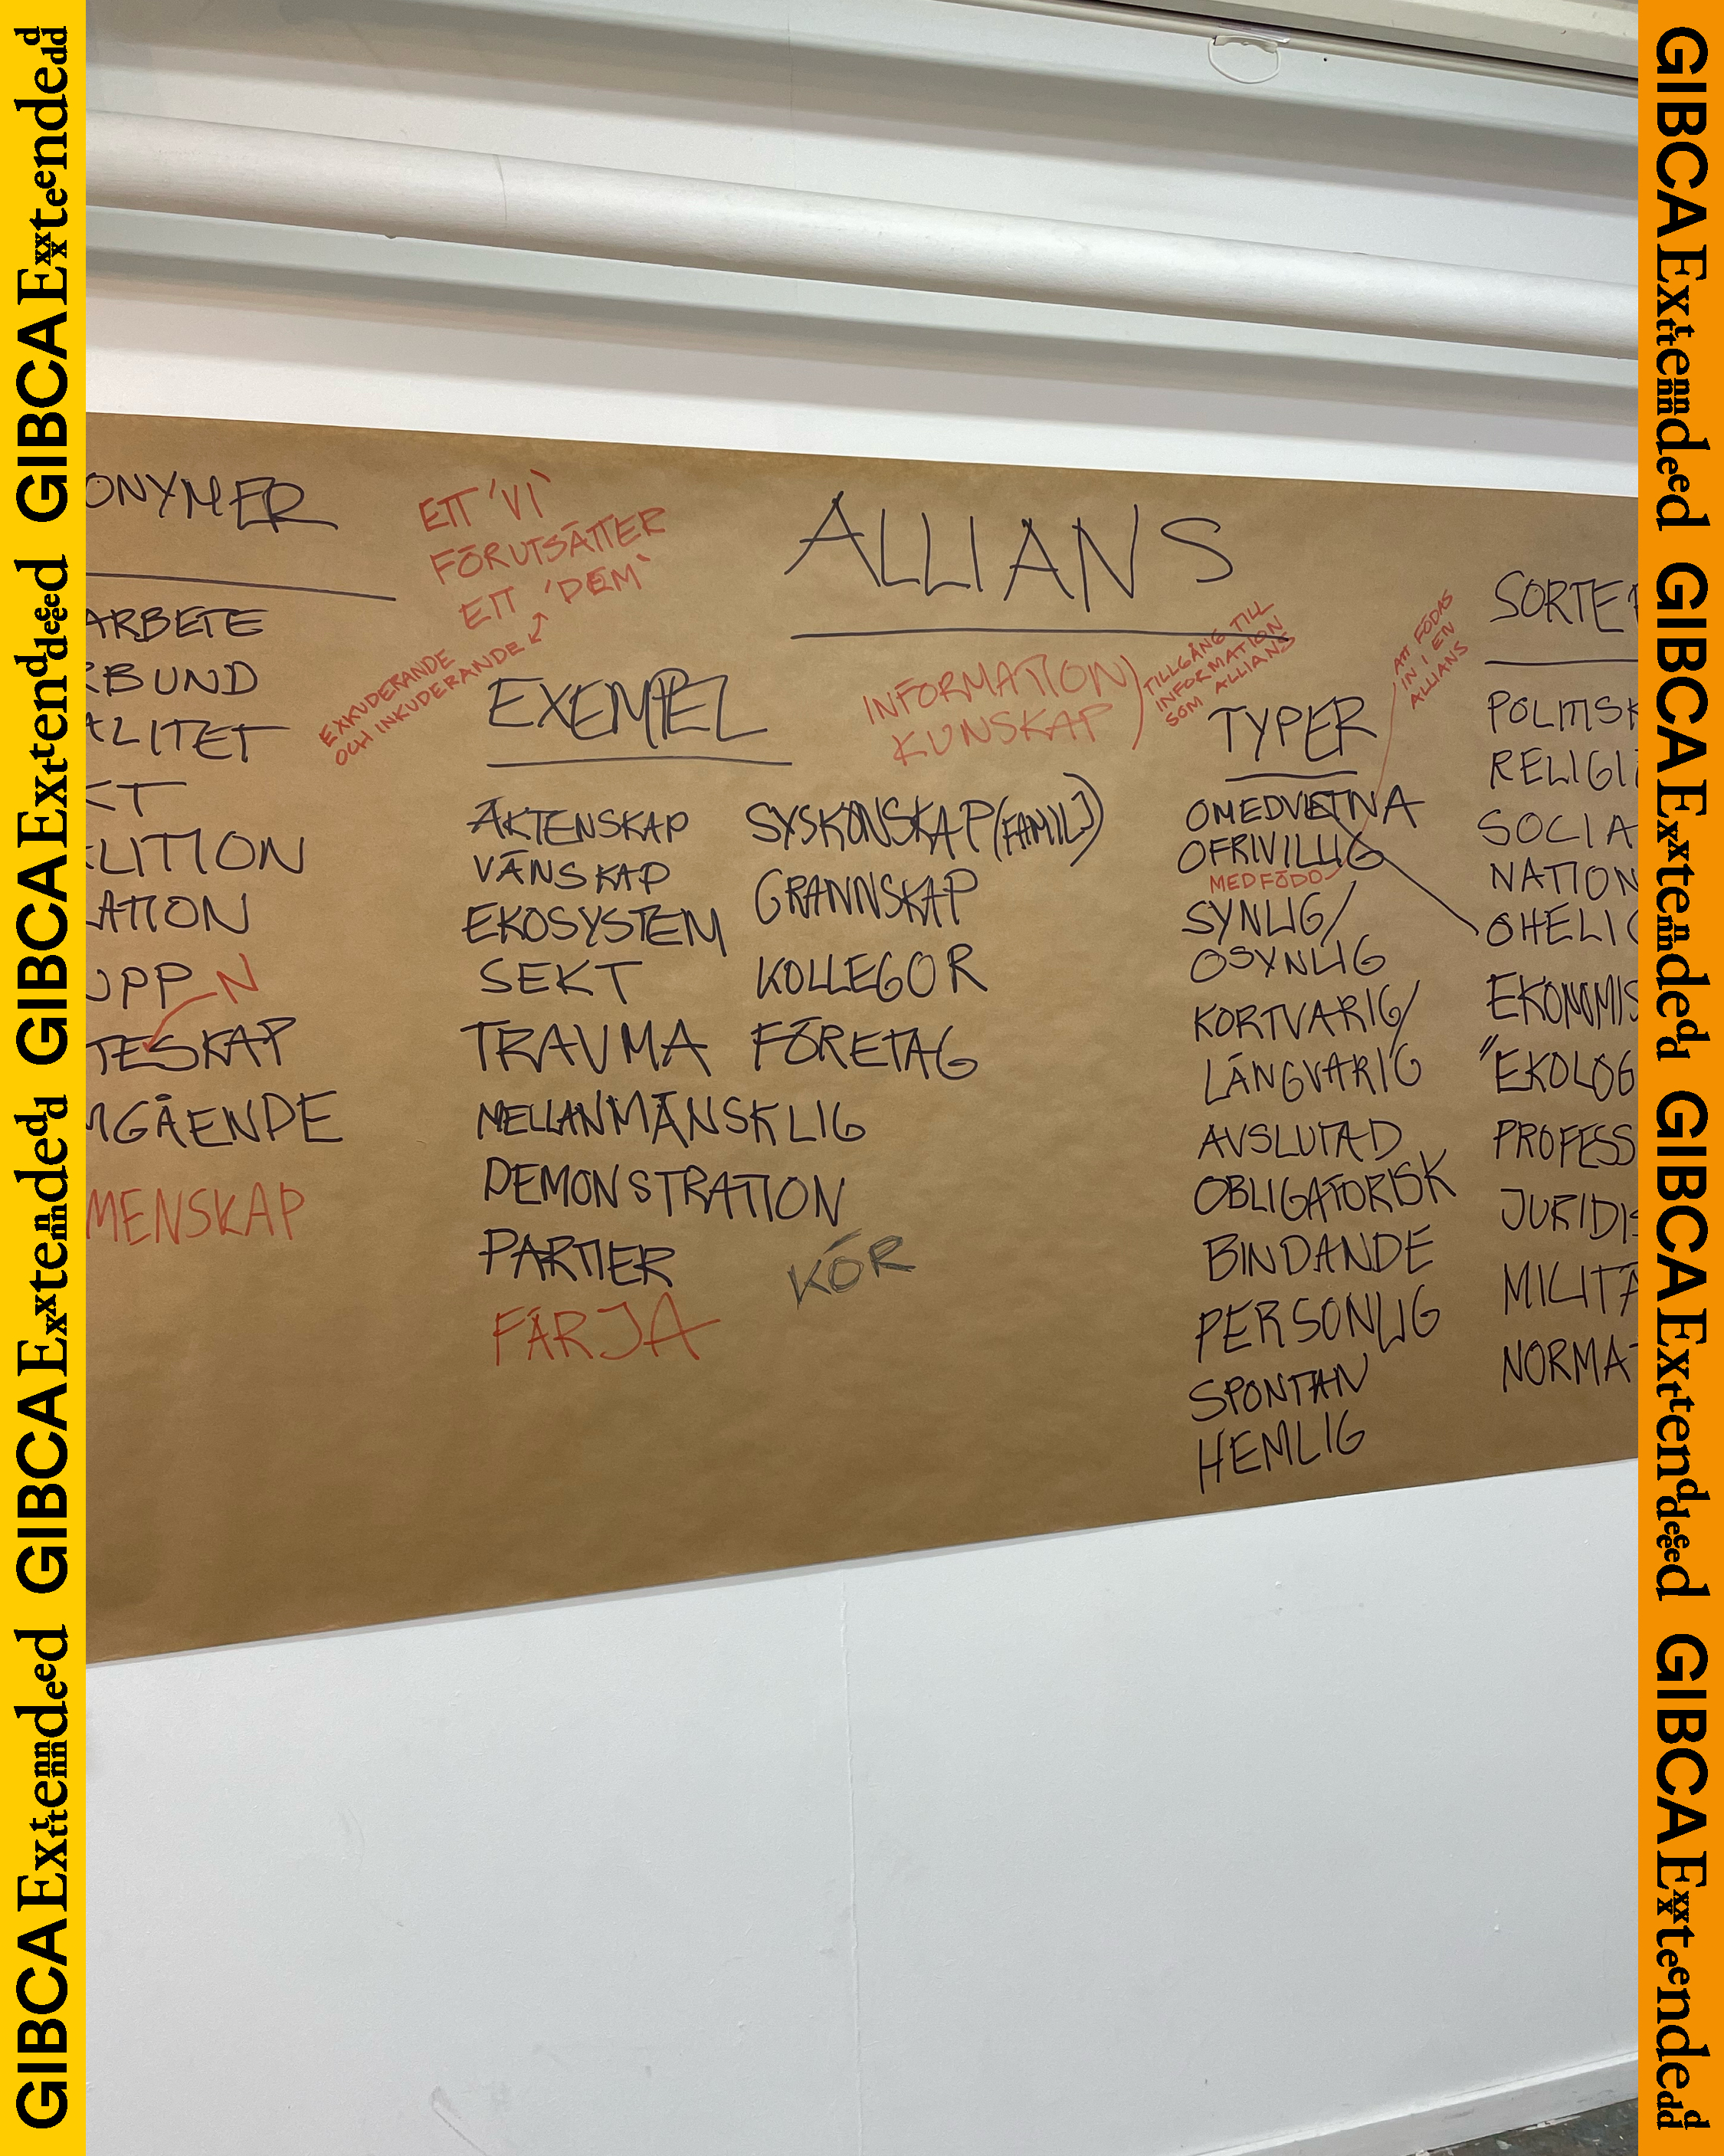 GIBCA Extended GIBCA Extended GIBCA Extended GIBCA Extended
ONYMER
ARBETE
RBUND
ALITET
KT
LITION
ATION
UPP N
TESKAP
MGÅENDE
MENSKAP
ETT 'VI'
FÖRUTSÄTTER
ETT 'DEM'
EXKUDERANDE
OCH INKUDERANDE
ALLIANS
EXEMPEL
ÄKTENSKAP
VÄNSKAP
EKOSYSTEM
SEKT
TRAVMA
MELLANMÄNSKLIG
DEMONSTRATION
PARTIER
FÄRJA
SYSKONSKAP (FAMILJ)
GRANNSKAP
KOLLEGOR
FÖRETAG
KÖR
INFORMATION
KUNSKAP
TILLGÅNG TILL
INFORMATION
SOM ALLIANS
TYPER
OMEDVETNA
OFRIVILLIG
MEDFÖDD
SYNLIG/
OSYNLIG
KORTVARIG/
LÅNGVARIG
AVSLUTAD
OBLIGATORISK
BINDANDE
PERSONLIG
SPONTAN
HEMLIG
ATT FÖDAS
IN I EN
ALLIANS
SORTER
POLITISK
RELIGI
SOCIA
NATION
OHELIG
EKONMIS
"EKOLOG
PROFESS
JURIDIS
MILITÄ
NORMAT
GIBCA Extended GIBCA Extended GIBCA Extended GIBCA Extended